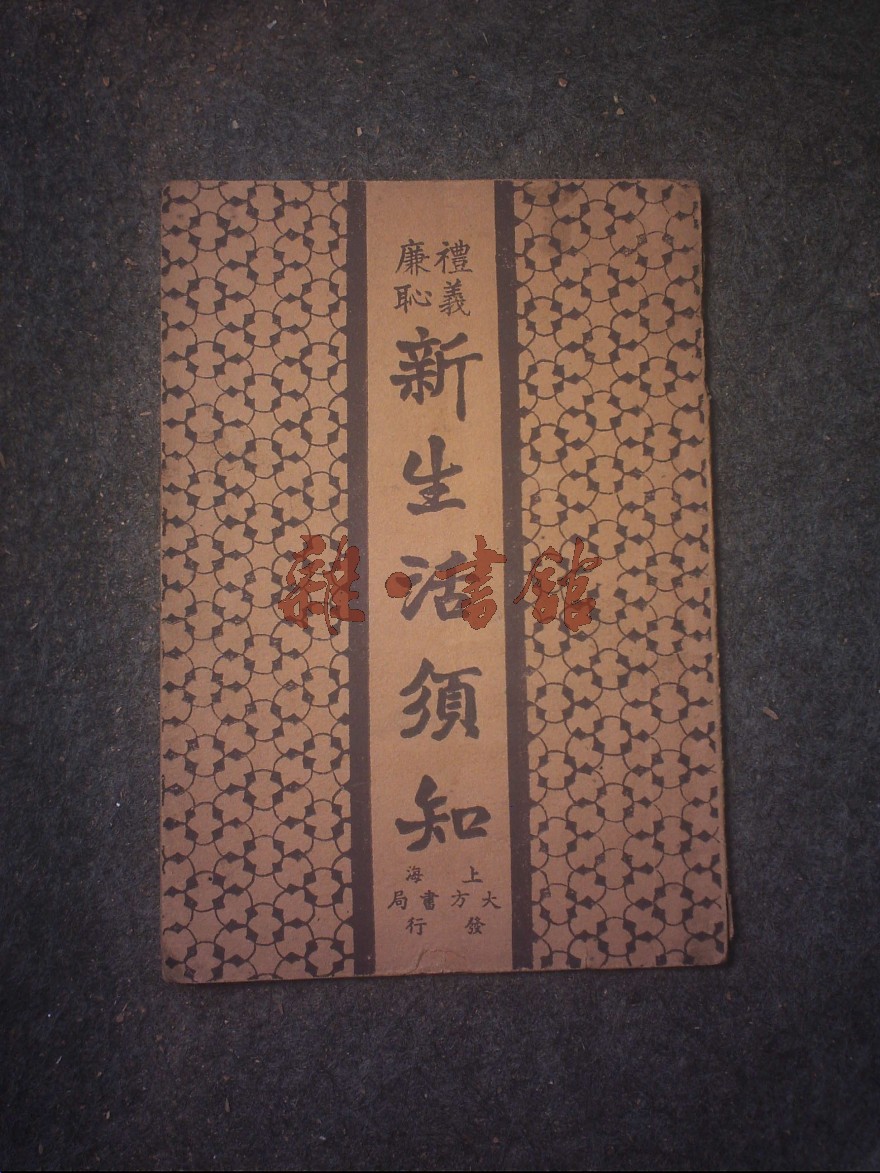 禮義
廉恥
新生活須知
上海
大方書局
發行
雜·書館